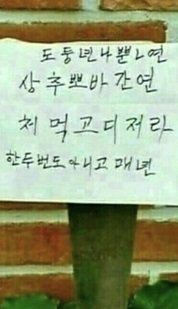 도둥년나뿐연
상추뽀바간연
처먹고디저라
한두번도아니고매년